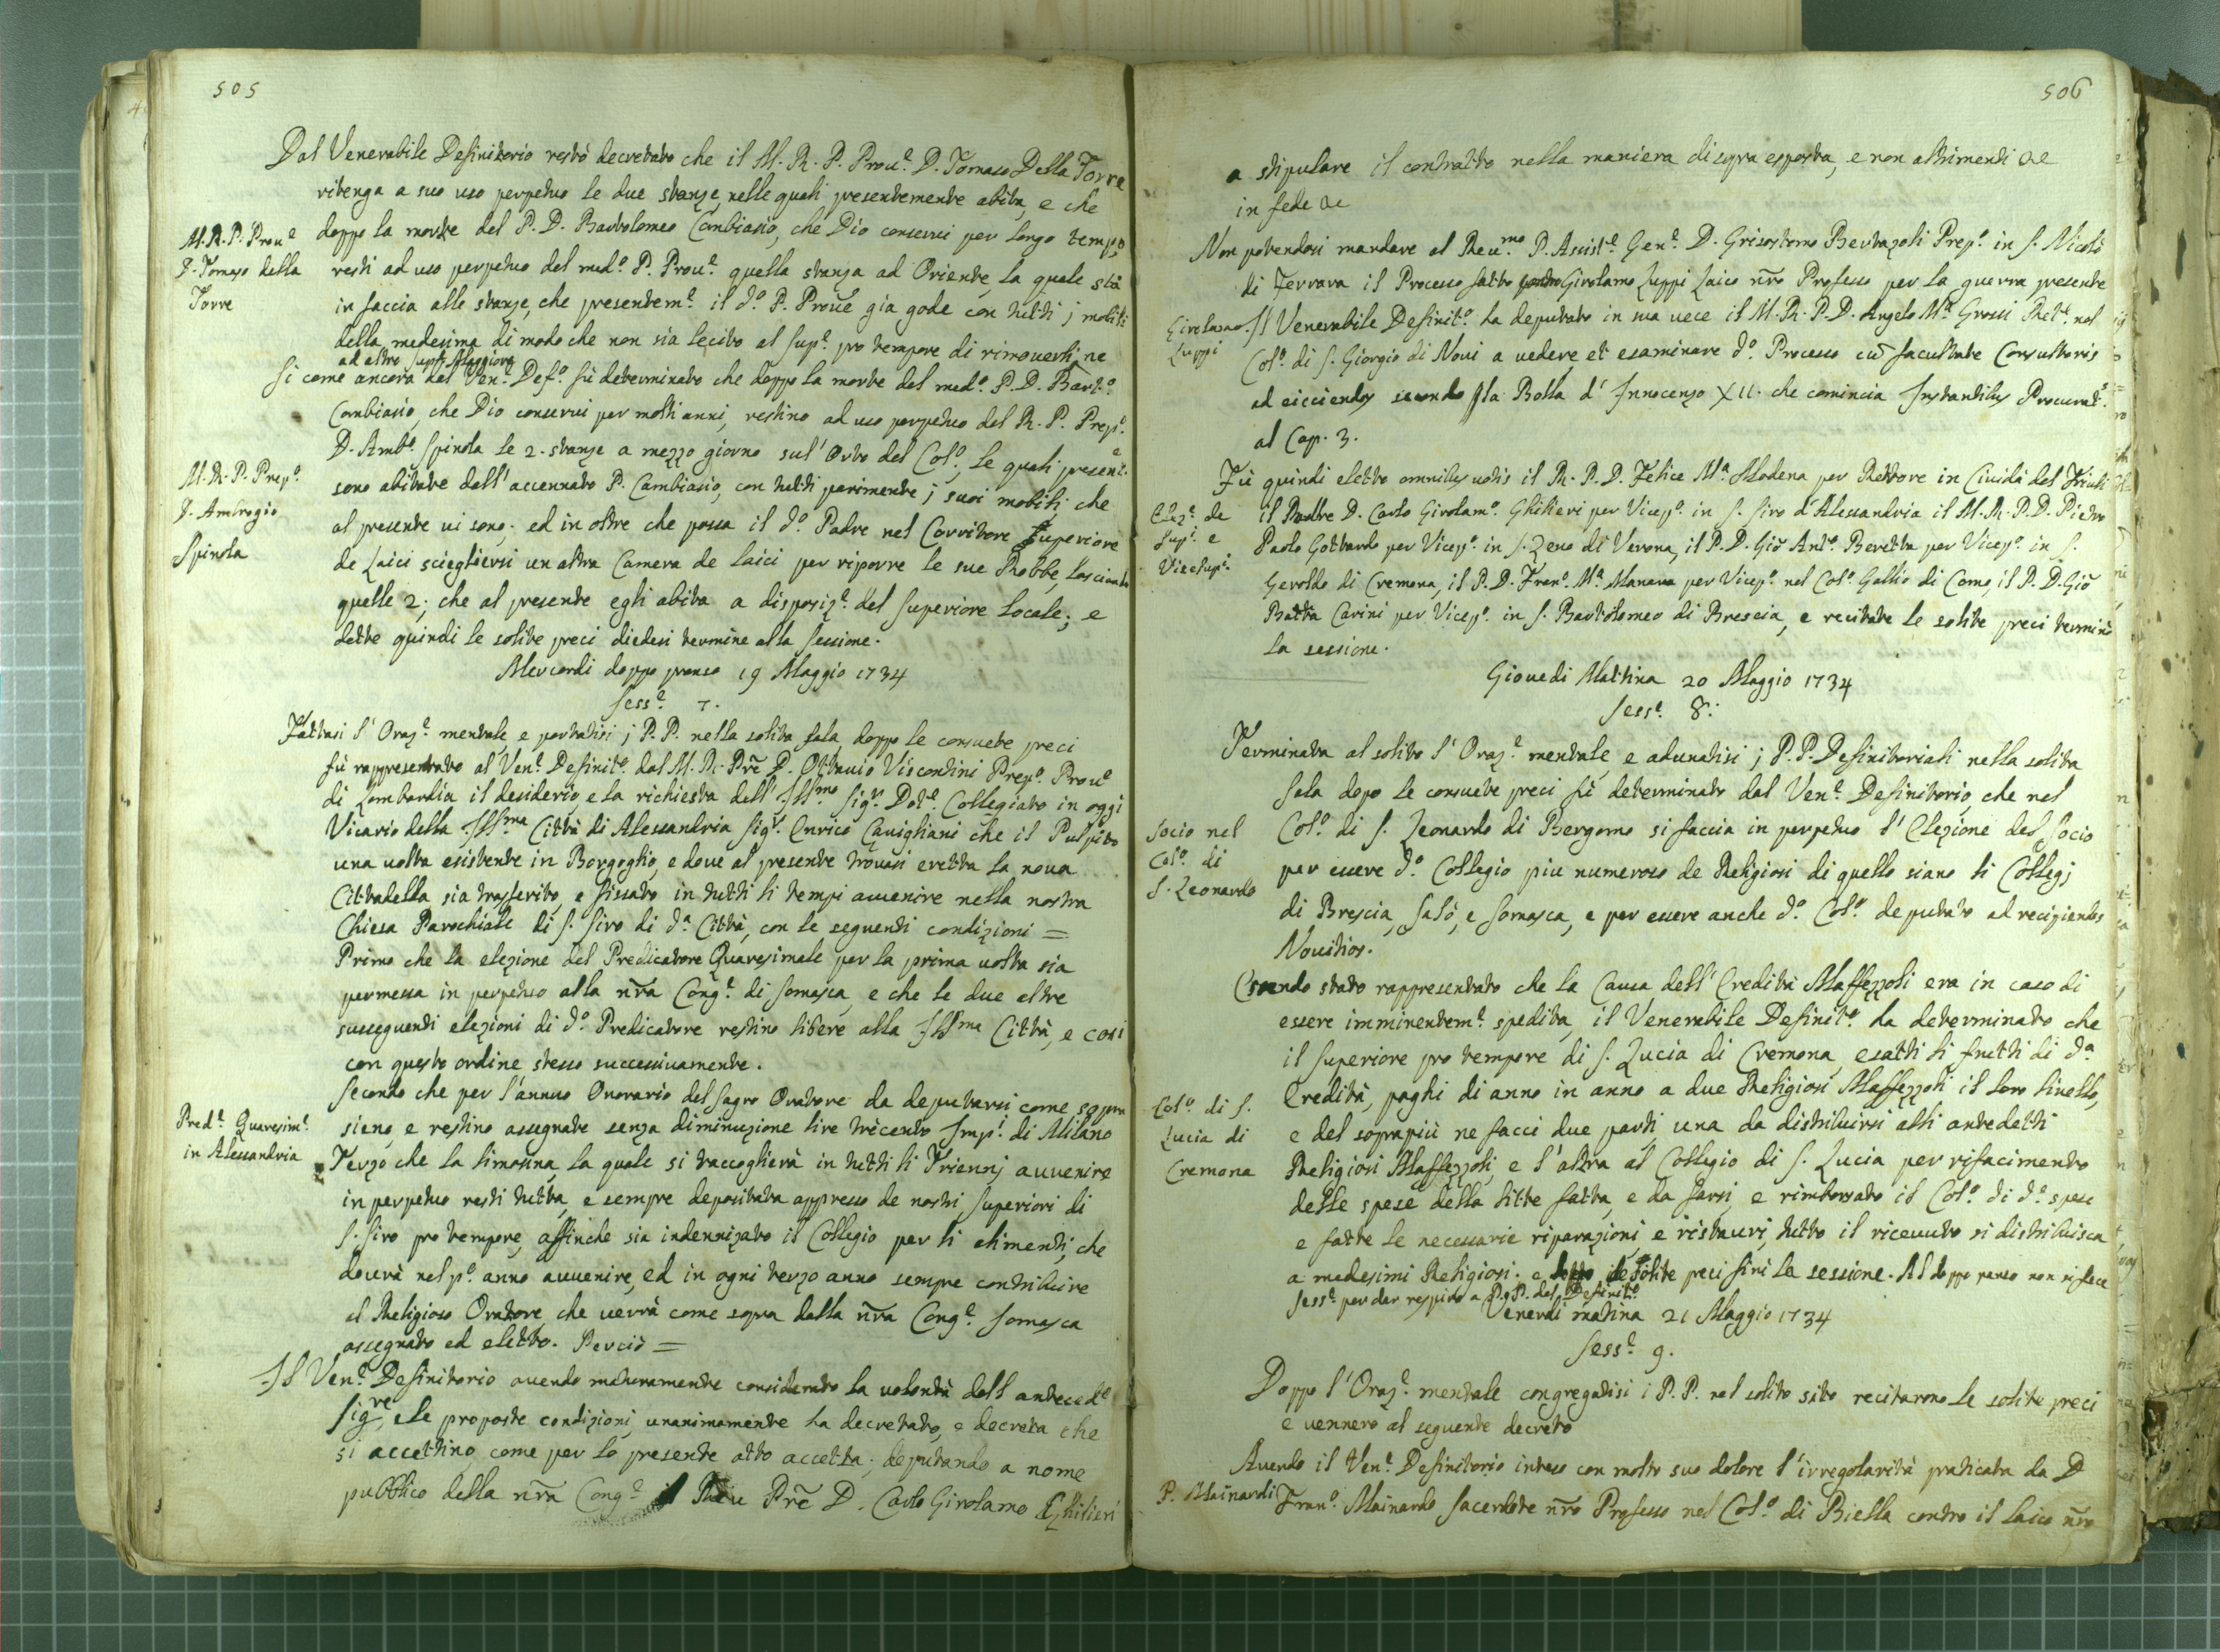 505
Dal Venerabile Definitorio restò decretato che il M. R. P. Prou.e D. Tomaso Della Torre
ritenga a suo uso perpetuo le due stanze, nelle quali presentemente abita, e che
M. R. P. Prou.e
D. Tomaso della
Torre
doppo la morte del P. D. Bartolomeo Cambiasio, che Dio conservi per longo tempo,
resti ad uso perpetuo del med.o P. Prou.e quella stanza ad Oriente, la quale stà
in faccia alle stanze, che presentem.e il d.o P. Prou.e gia gode con tutti j mobili
della medesima di modo che non sia lecito al Sup.e pro tempore di rimoverli, ne
ad altro Sup.e Maggiore
Si come ancora dal Ven.e Def.o fù determinato che doppo la morte del med.o P. D. Bart.o
Cambiasio, che Dio conservi per molti anni, restino ad uso perpetuo del R. P. Prep.o
M. R. P. Prep.o
D. Ambrogio
Spinola
D. Amb.o Spinola le 2. stanze a mezzo giorno sul' Orto del Col.o, le quali present.e
sono abitate dall' accennato P. Cambiasio, con tutti parimente j suoi mobili, che
al presente vi sono; ed in oltre che possa il d.o Padre nel Corritore superiore
de Laici sciegliersi un altra Camera de laici per riporre le sue Robbe, lasciando
quelle 2; che al presente egli abita a disposiz.e del Superiore Locale; e
dette quindi le solite preci diedesi termine alla Sessione.
Mercordi doppo pranso 19 Maggio 1734
Sess.e 7.
Fattasi l' Oraz.e mentale, e portatisi j P. P. nella solita sala, doppo le consuete preci
fù rappresentato al Ven.e Definit.o dal M. R. Prē D. Ottavio Viscontini Prep.o Prou.e
di Lombardia il desiderio, e la richiesta dell' Ill.mo Sig.r Dot.e Collegiato in oggi
Vicario della Ill.ma Città di Alessandria Sig.r Enrico Cavigliani che il Pulpito
una volta esistente in Borgoglio, e dove al presente trovasi eretta la nova
Cittadella sia trasferito, e fissato in tutti li tempi avvenire nella nostra
Chiesa Parochiale di S. Siro di d.a Città, con le seguenti condizioni =
Primo che la elezione del Predicatore Quaresimale per la prima volta sia
permessa in perpetuo alla nr̄a Cong.e di Somasca, e che le due altre
susseguenti elezioni di d.o Predicatore restino libere alla Ill.ma Città, e cosi
con questo ordine stesso successivamente.
Secondo che per l' annuo Onorario del Sagro Oratore da deputarsi come sopra
Pred.e Quaresim.e
in Alessandria
siano, e restino assegnate senza diminuzione lire trècento Imp.i di Milano
Terzo che la limosina, la quale si raccoglierà in tutti li Triennj avvenire
in perpetuo resti tutta, e sempre depositata appresso de nostri Superiori di
S. Siro pro tempore, affinche sia indennizato il Collegio per li alimenti, che
dovrà nel p.o anno avvenire, ed in ogni terzo anno sempre contribuire
al Religioso Oratore, che verrà come sopra dalla nr̄a Cong.e Somasca
assegnato ed eletto. Perciò =
Il Ven.e Definitorio avendo maturamente considerato la volontà dell anteced.e
Sig.re, e le proposte condizioni, unanimamente ha decretato, e decreta che
si accettino, come per lo presente atto accetta; deputando a nome
pubblico della nr̄a Cong.e il Prē D. Carlo Girolamo Ghilieri
506
a stipulare il contratto nella maniera di sopra esposta, e non altrimenti &c
in fede &c
Non potendosi mandare al Reu.mo P. Assist.e Gen.e D. Grisostomo Bertazoli Prep.o in S. Nicolò
di Ferrara il Processo fatto contro Girolamo Zuppi Laico nr̄o Professo per la guerra presente
Girolamo
Zuppi
Il Venerabile Definit.o ha deputato in sua vece il M. R. P. D. Angelo M.a Grossi Ret.e nel
Col.o di S. Giorgio di Novi a vedere, et esaminare d.o Processo cū facultate Consultoris
ad eiiciendos secondo la Bolla d' Innocenzo XII. che comincia Instantibus Procurat.s
al Cap. 3.
Fù quindi eletto omnibus votis il R. P. D. Felice M.a Modena per Rettore in Cividà del Friuli
Elez.e de
Sup.i e
Vicesup.i
il Padre D. Carlo Girolam.o Ghilieri per Vicep.o in S. Siro d' Alessandria il M. R. P. D. Pietro
Paolo Gottardo per Vicep.o in S. Zeno di Verona, il P. D. Giō Ant.o Beretta per Vicep.o in S.
Geroldo di Cremona, il P. D. Fran.o M.a Manara per Vicep.o nel Col.o Gallio di Como, il P. D. Giō
Batta Carini per Vicep.o in S. Bartolomeo di Brescia, e recitate le solite preci terminò
la sessione.
Giovedi Mattina 20 Maggio 1734
Sess.e 8.
Terminata al solito l' Oraz.e mentale, e adunatisi j P. P. Definitoriali nella solita
Sala dopo le consuete preci fù determinato dal Ven.e Definitorio, che nel
Socio nel
Col.o di
S. Leonardo
Col.o di S. Leonardo di Bergamo si faccia in perpetuo l' Elezione del Socio
per essere d.o Collegio piu numeroso de Religiosi di quello siano li Collegj
di Brescia, Salò, e Somasca, e per essere anche d.o Col.o deputato ad recipiendos
Novitios.
Essendo stato rappresentato che la Causa dell' Eredità Maffezzoli era in caso di
essere imminentem.e spedita, il Venerabile Definit.o ha determinato che
il Superiore pro tempore di S. Lucia di Cremona, esatti li frutti di d.a
Col.o di S.
Lucia di
Cremona
Eredità, paghi di anno in anno a due Religiosi Maffezzoli il loro livello,
e del soprapiù ne facci due parti, una da distribuirsi alli antedetti
Religiosi Maffezzoli, e l' altra al Collegio di S. Lucia per rifacimento
delle spese della litte fatta, e da farsi, e rimborsato il Col.o di d.e spese
e fatte le necessarie riparazioni, e ristauri, tutto il ricevuto si distribuisca
a medesimi Religiosi. e le solite preci finì la sessione. Al doppo pranso non si fece
Sess.e per dar respiro a P. P. del Definit.o
Venerdi matina 21 Maggio 1734
Sess.e 9.
Doppo l' Oraz.e mentale congregatisi i P. P. nel solito sito recitarono le solite preci
e vennero al seguente decreto
Avendo il Ven.e Definitorio inteso con molto suo dolore l' irregolarità praticata da D
P. Mainardi
Fran.o Mainardo Sacerdote nr̄o Professo nel Col.o di Biella contro il laico nr̄o